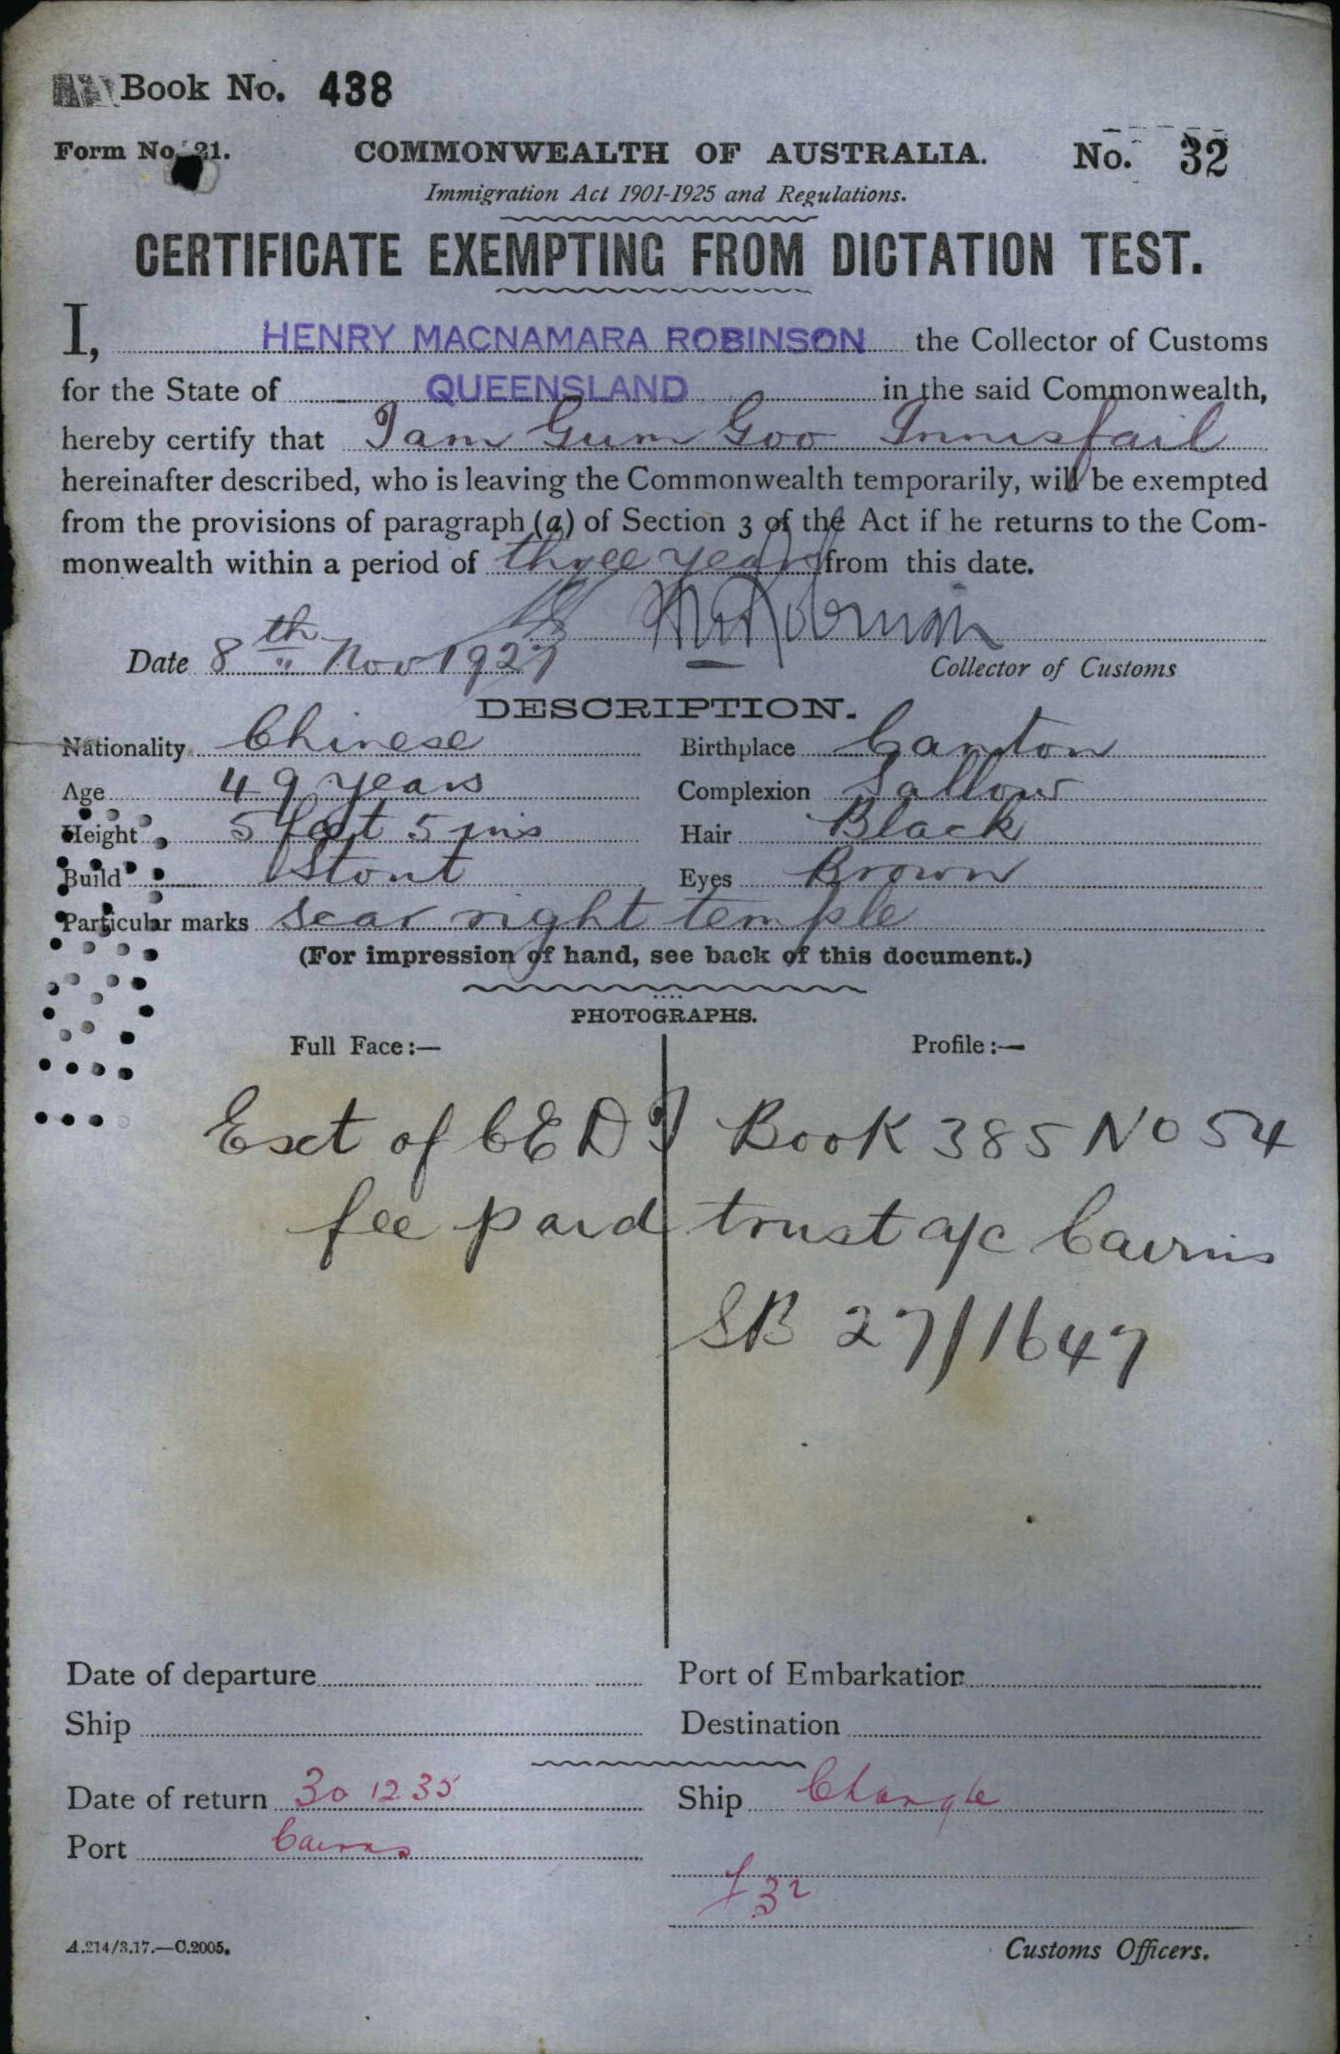 Book No. 438
Form No. 21. COMMONWEALTH OF AUSTRALIA. No. 32
Immigration Act 1901-1925 and Regulations.
CERTIFICATE EXEMPTING FROM DICTATION TEST.
I, HENRY MACNAMARA ROBINSON the Collector of Customs
for the State of QUEENSLAND in the said Commonwealth,
hereby certify that Tam Gum Goo Innisfail
hereinafter described, who is leaving the Commonwealth temporarily, will be exempted
from the provisions of paragraph (a) of Section 3 of the Act if he returns to the Com-
monwealth within a period of three years from this date.
HMRobinson
Date 8th Nov 1927 Collector of Customs
DESCRIPTION.
Nationality Chinese Birthplace Canton
Age 49 years Complexion Sallow
Height 5 feet 5 ins Hair Black
Build Stout Eyes Brown
Particular marks Scar right temple
(For impression of hand, see back of this document.)
PHOTOGRAPHS.
Full Face:— Profile:—
Ext of CEDT Book 385 No 54
fee paid trust a/c Cairns
SB 27/1647
Date of departure Port of Embarkation
Ship Destination
Date of return 30 12 35 Ship Changte
Port Cairns
32
A.214/3.17.—C.2005. Customs Officers.